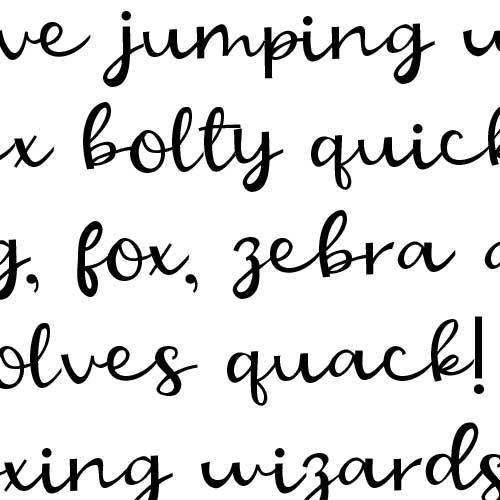 ve jumping w
x bolty quick
g, fox, zebra a
olves quack!
xing wizards